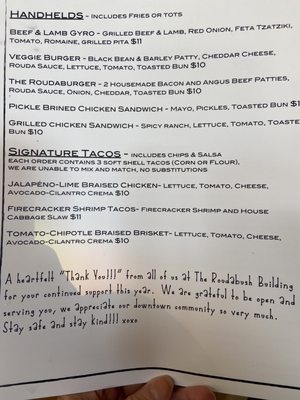 Handhelds - includes Fries or tots
Beef & Lamb Gyro - Grilled Beef & Lamb, Red Onion, Feta Tzatziki,
Tomato, Romaine, grilled pita $11
Veggie Burger - Black Bean & Barley Patty, Cheddar Cheese,
Rouda Sauce, Lettuce, Tomato, Toasted Bun $10
The Roudaburger - 2 housemade Bacon and Angus Beef Patties,
Rouda Sauce, Onion, Cheddar, Toasted Bun $10
Pickle Brined Chicken Sandwich - Mayo, Pickles, Toasted Bun $1
Grilled chicken Sandwich - Spicy ranch, Lettuce, Tomato, Toasted
Bun $10
Signature Tacos - includes chips & salsa
each order contains 3 soft shell tacos (corn or flour),
we are unable to mix and match, no substitutions
Jalapeño-Lime Braised Chicken- Lettuce, Tomato, Cheese,
Avocado-Cilantro Crema $10
Firecracker Shrimp Tacos- Firecracker Shrimp and House
Cabbage Slaw $11
Tomato-Chipotle Braised Brisket- Lettuce, Tomato, Cheese,
Avocado-Cilantro Crema $10
A heartfelt "Thank You!!!" from all of us at The Roudabush Building
for your continued support this year. We are grateful to be open and
serving you, we appreciate our downtown community so very much.
Stay safe and stay kind!!! xoxo